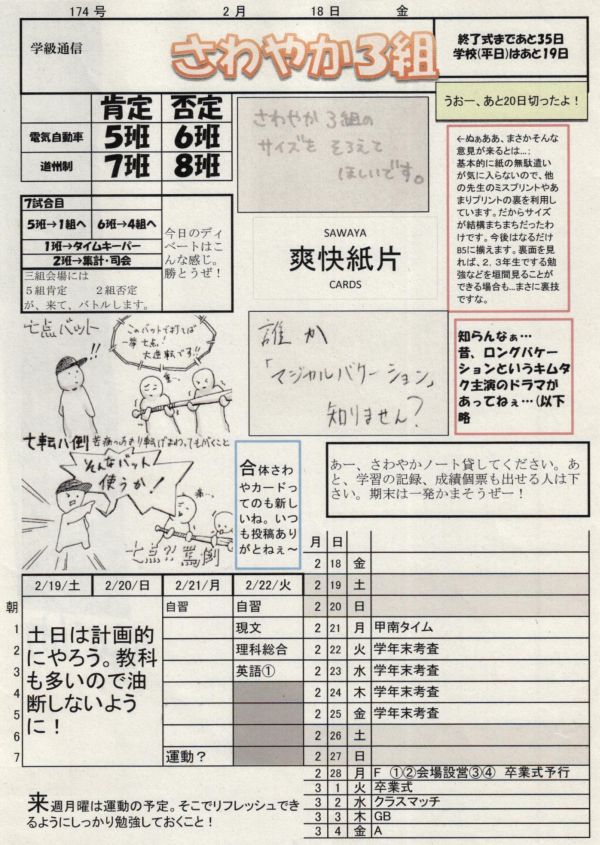 174 号 2 月 18 日 金
学級通信
さわやか3組
終了式まであと35日
学校(平日)はあと19日
うおー、あと20日切ったよ！
肯定 否定
電気自動車 5班 6班
道州制 7班 8班
7試合目
5班→1組へ 6班→4組へ
1班→タイムキーパー
2班→集計・司会
三組会場には
5組肯定 2組否定
が、来て、バトルします。
今日のディ
ベートはこ
んな感じ。
勝とうぜ！
さわやか3組の
サイズを そろえて
ほしいです。
SAWAYA
爽快紙片
CARDS
誰か
「マジカルバケーション」
知りません？
←ぬぁああ、まさかそんな
意見が来るとは…；
基本的に紙の無駄遣い
が気に入らないので、他
の先生のミスプリントやあ
まりプリントの裏を利用し
ています。だからサイズ
が結構まちまちだったわ
けです。今後はなるだけ
B5に揃えます。裏面を見
れば、2．3年生でする勉
強などを垣間見ることが
できる場合も…まさに裏技
ですな。
知らんなぁ…
昔、ロングバケー
ションというキムタ
ク主演のドラマが
あってねぇ…(以下
略
七点バット
!!
このバットで打てば
一挙七点！
大逆転です!!
七転八倒 苦痛のあまり転げまわってもがくこと
そんなバット
使うか！
七点?! 罵倒
合体さわ
やカードっ
てのも新し
いね。いつ
も投稿あり
がとねぇ～
あー、さわやかノート貸してください。あ
と、学習の記録、成績個票も出せる人は下
さい。期末は一発かまそうぜー！
2/19/土 2/20/日 2/21/月 2/22/火
朝 自習 自習
1 現文
2 理科総合
3 英語①
4
5
6
7 運動？
土日は計画的
にやろう。教科
も多いので油
断しないよう
に！
来週月曜は運動の予定。そこでリフレッシュでき
るようにしっかり勉強しておくこと！
月 日
2 18 金
2 19 土
2 20 日
2 21 月 甲南タイム
2 22 火 学年末考査
2 23 水 学年末考査
2 24 木 学年末考査
2 25 金 学年末考査
2 26 土
2 27 日
2 28 月 F ①②会場設営③④ 卒業式予行
3 1 火 卒業式
3 2 水 クラスマッチ
3 3 木 GB
3 4 金 A